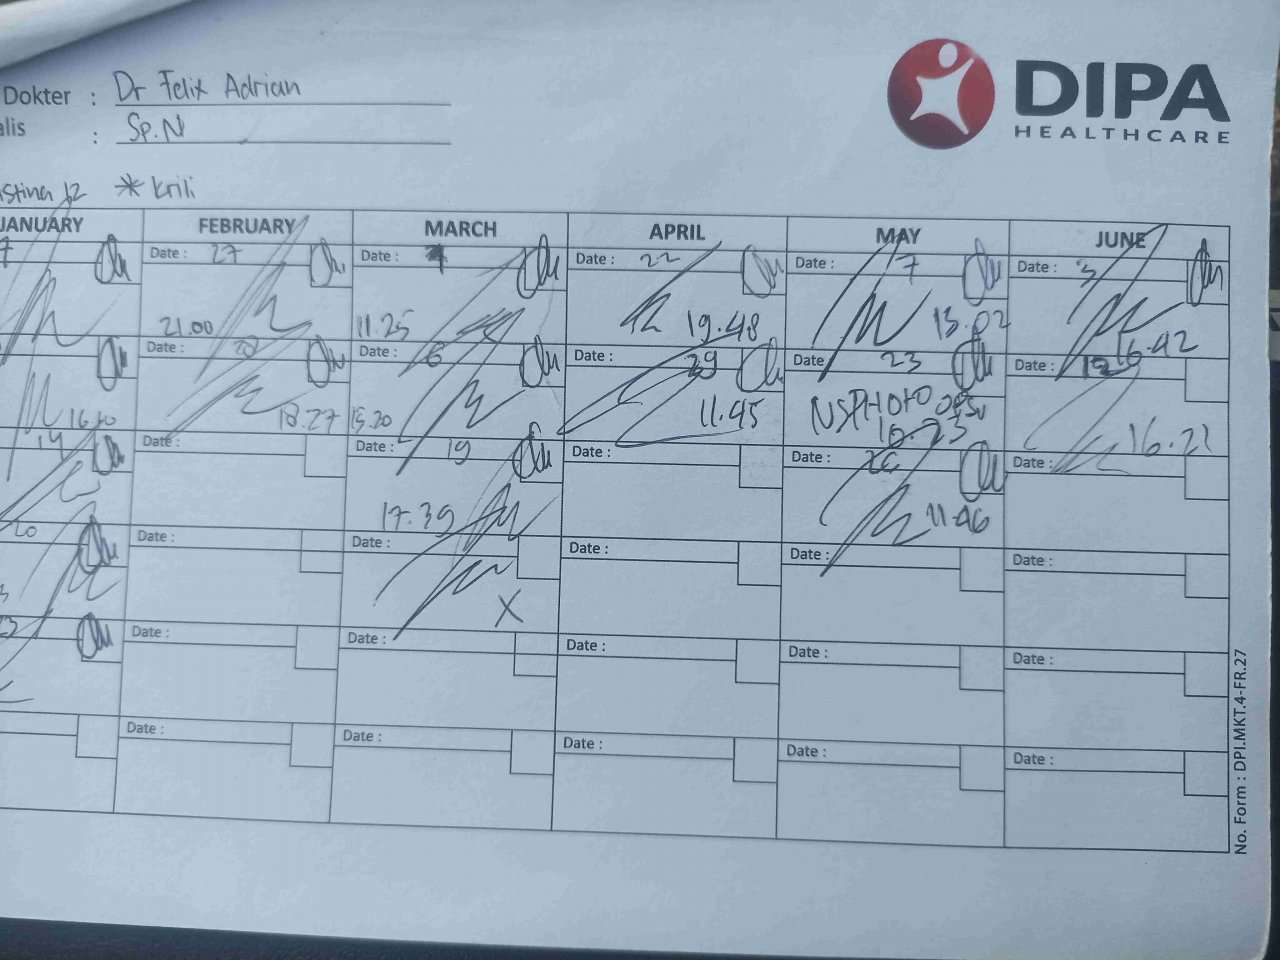 Dokter : Dr Felix Adrian
alis : Sp.N
DIPA
HEALTHCARE
stina 12 * Krili
JANUARY FEBRUARY MARCH APRIL MAY JUNE
7 Date : 27 Date : Date : 22 Date : 7 Date : 3
21.00 11.25 19.48 13.02 16.42
Date : Date : 6 Date : 29 Date 23 12
18.27 15.20 11.45 16.23 16.21
14 Date : Date : 19 Date : Date : 26 Date :
17.39 11.46
20 Date : Date : Date : Date : Date :
X
Date : Date : Date : Date : Date :
Date : Date : Date : Date : Date :
No. Form : DPI.MKT.4-FR.27